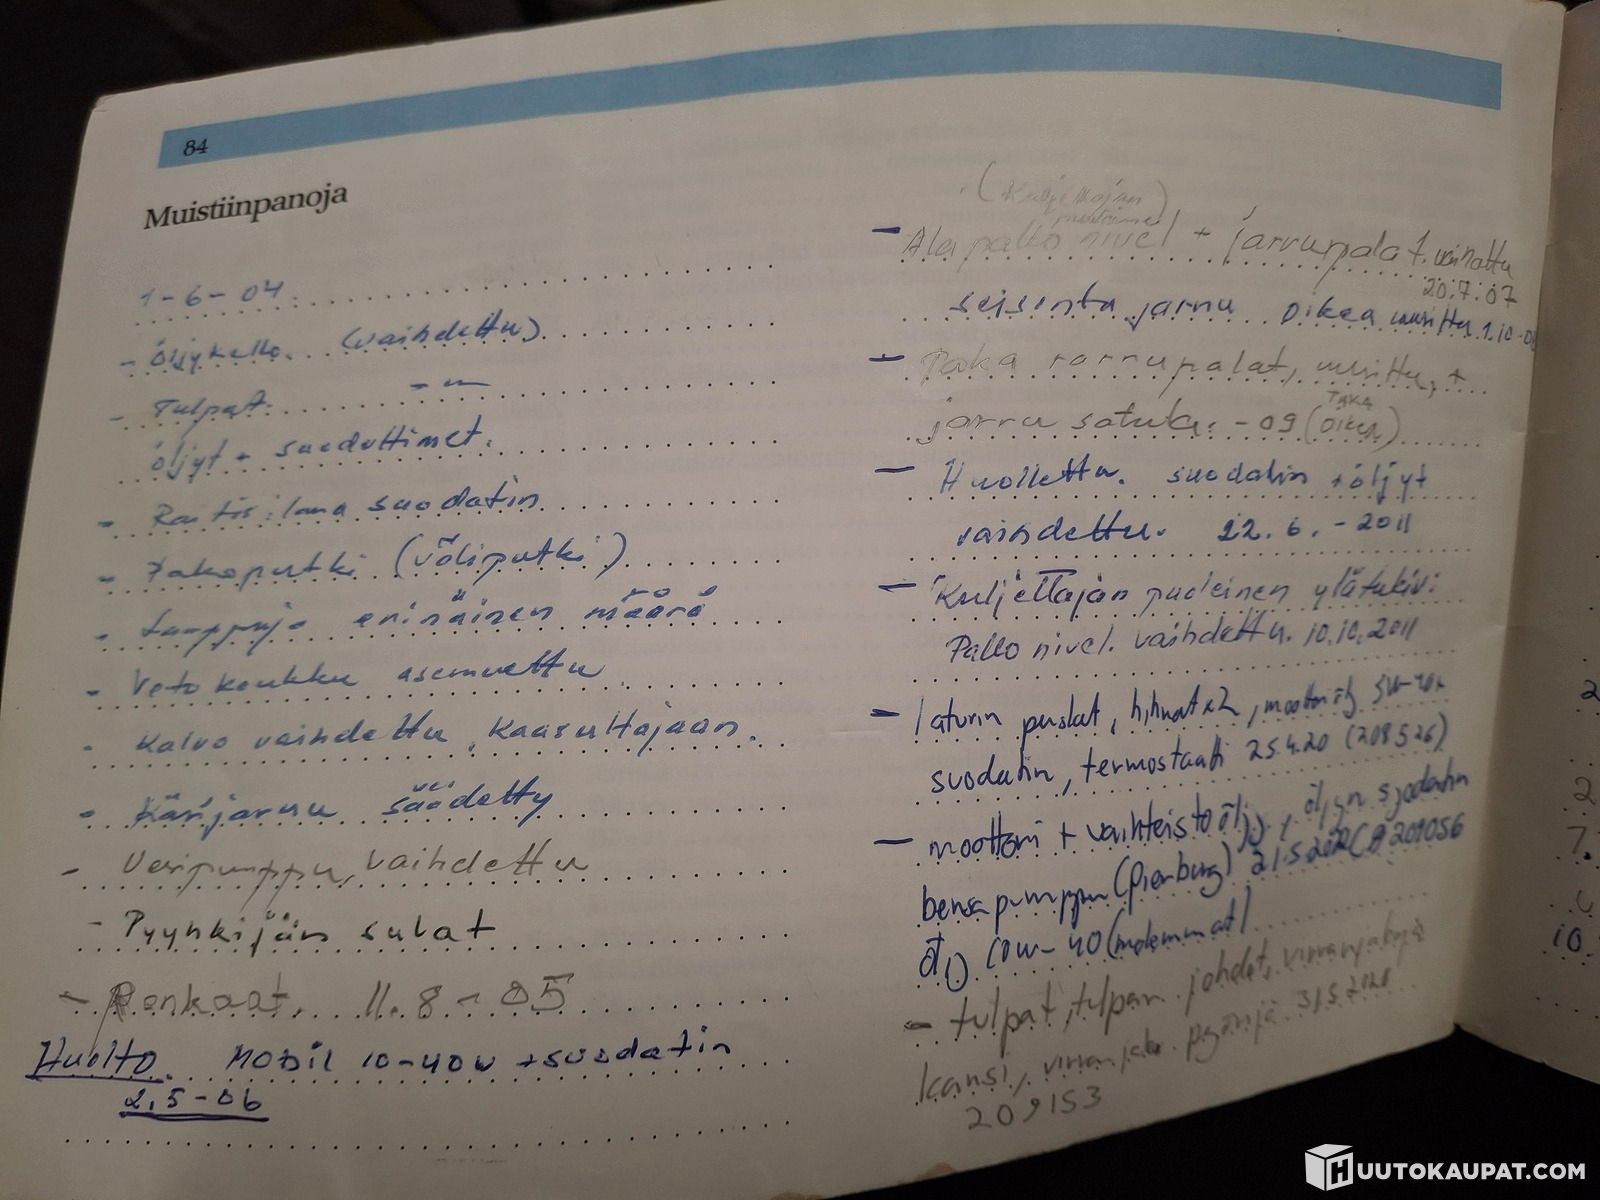 84
Muistiinpanoja
1-6-04.
- öljykello. (vaihdettu)
- Tulpat. -"-
öljyt + suodattimet.
- Raitisilma suodatin
- Pakoputki (väliputki)
- Lamppuja eninäinen määrä
- Vetokoukku asennettu
- Kalvo vaihdettu kaasuttajaan.
- Käsijarru säädetty
- Vesipumppu, vaihdettu
- Pyyhkijän sulat
- Renkaat. 11.8-05
Huolto. Mobil 10-40w + suodatin
2.5-06
(Kuljettajan
- Ala pallo nivel + jarrupalat.
20.7.07
seisonta jarru oikea uusittu 1.10-0
- Taka jarrupalat, uusittu, +
TAKA
jarru satula. -09 (oikea)
- Huollettu. suodatin + öljyt
vaihdettu. 22.6.-2011
- Kuljettajan puoleinen ylätukivi
Pallo nivel. vaihdettu. 10.10.2011
- laturin puslat, hihnat x2, moottoriölj 5W-40
suodatin, termostaatti 25.4.20 (208526)
- moottori + vaihteistoöljy, öljyn suodatin
bensapumppu (Pierburg) 21.5.2020 209056
ölj 10W-40 (molemmat)
- tulpat, tulpan johdot, virranjakaja
kansi, virranjak. pyörijä 31.5.2020
209153
2
2
7.
10.
HUUTOKAUPAT.COM